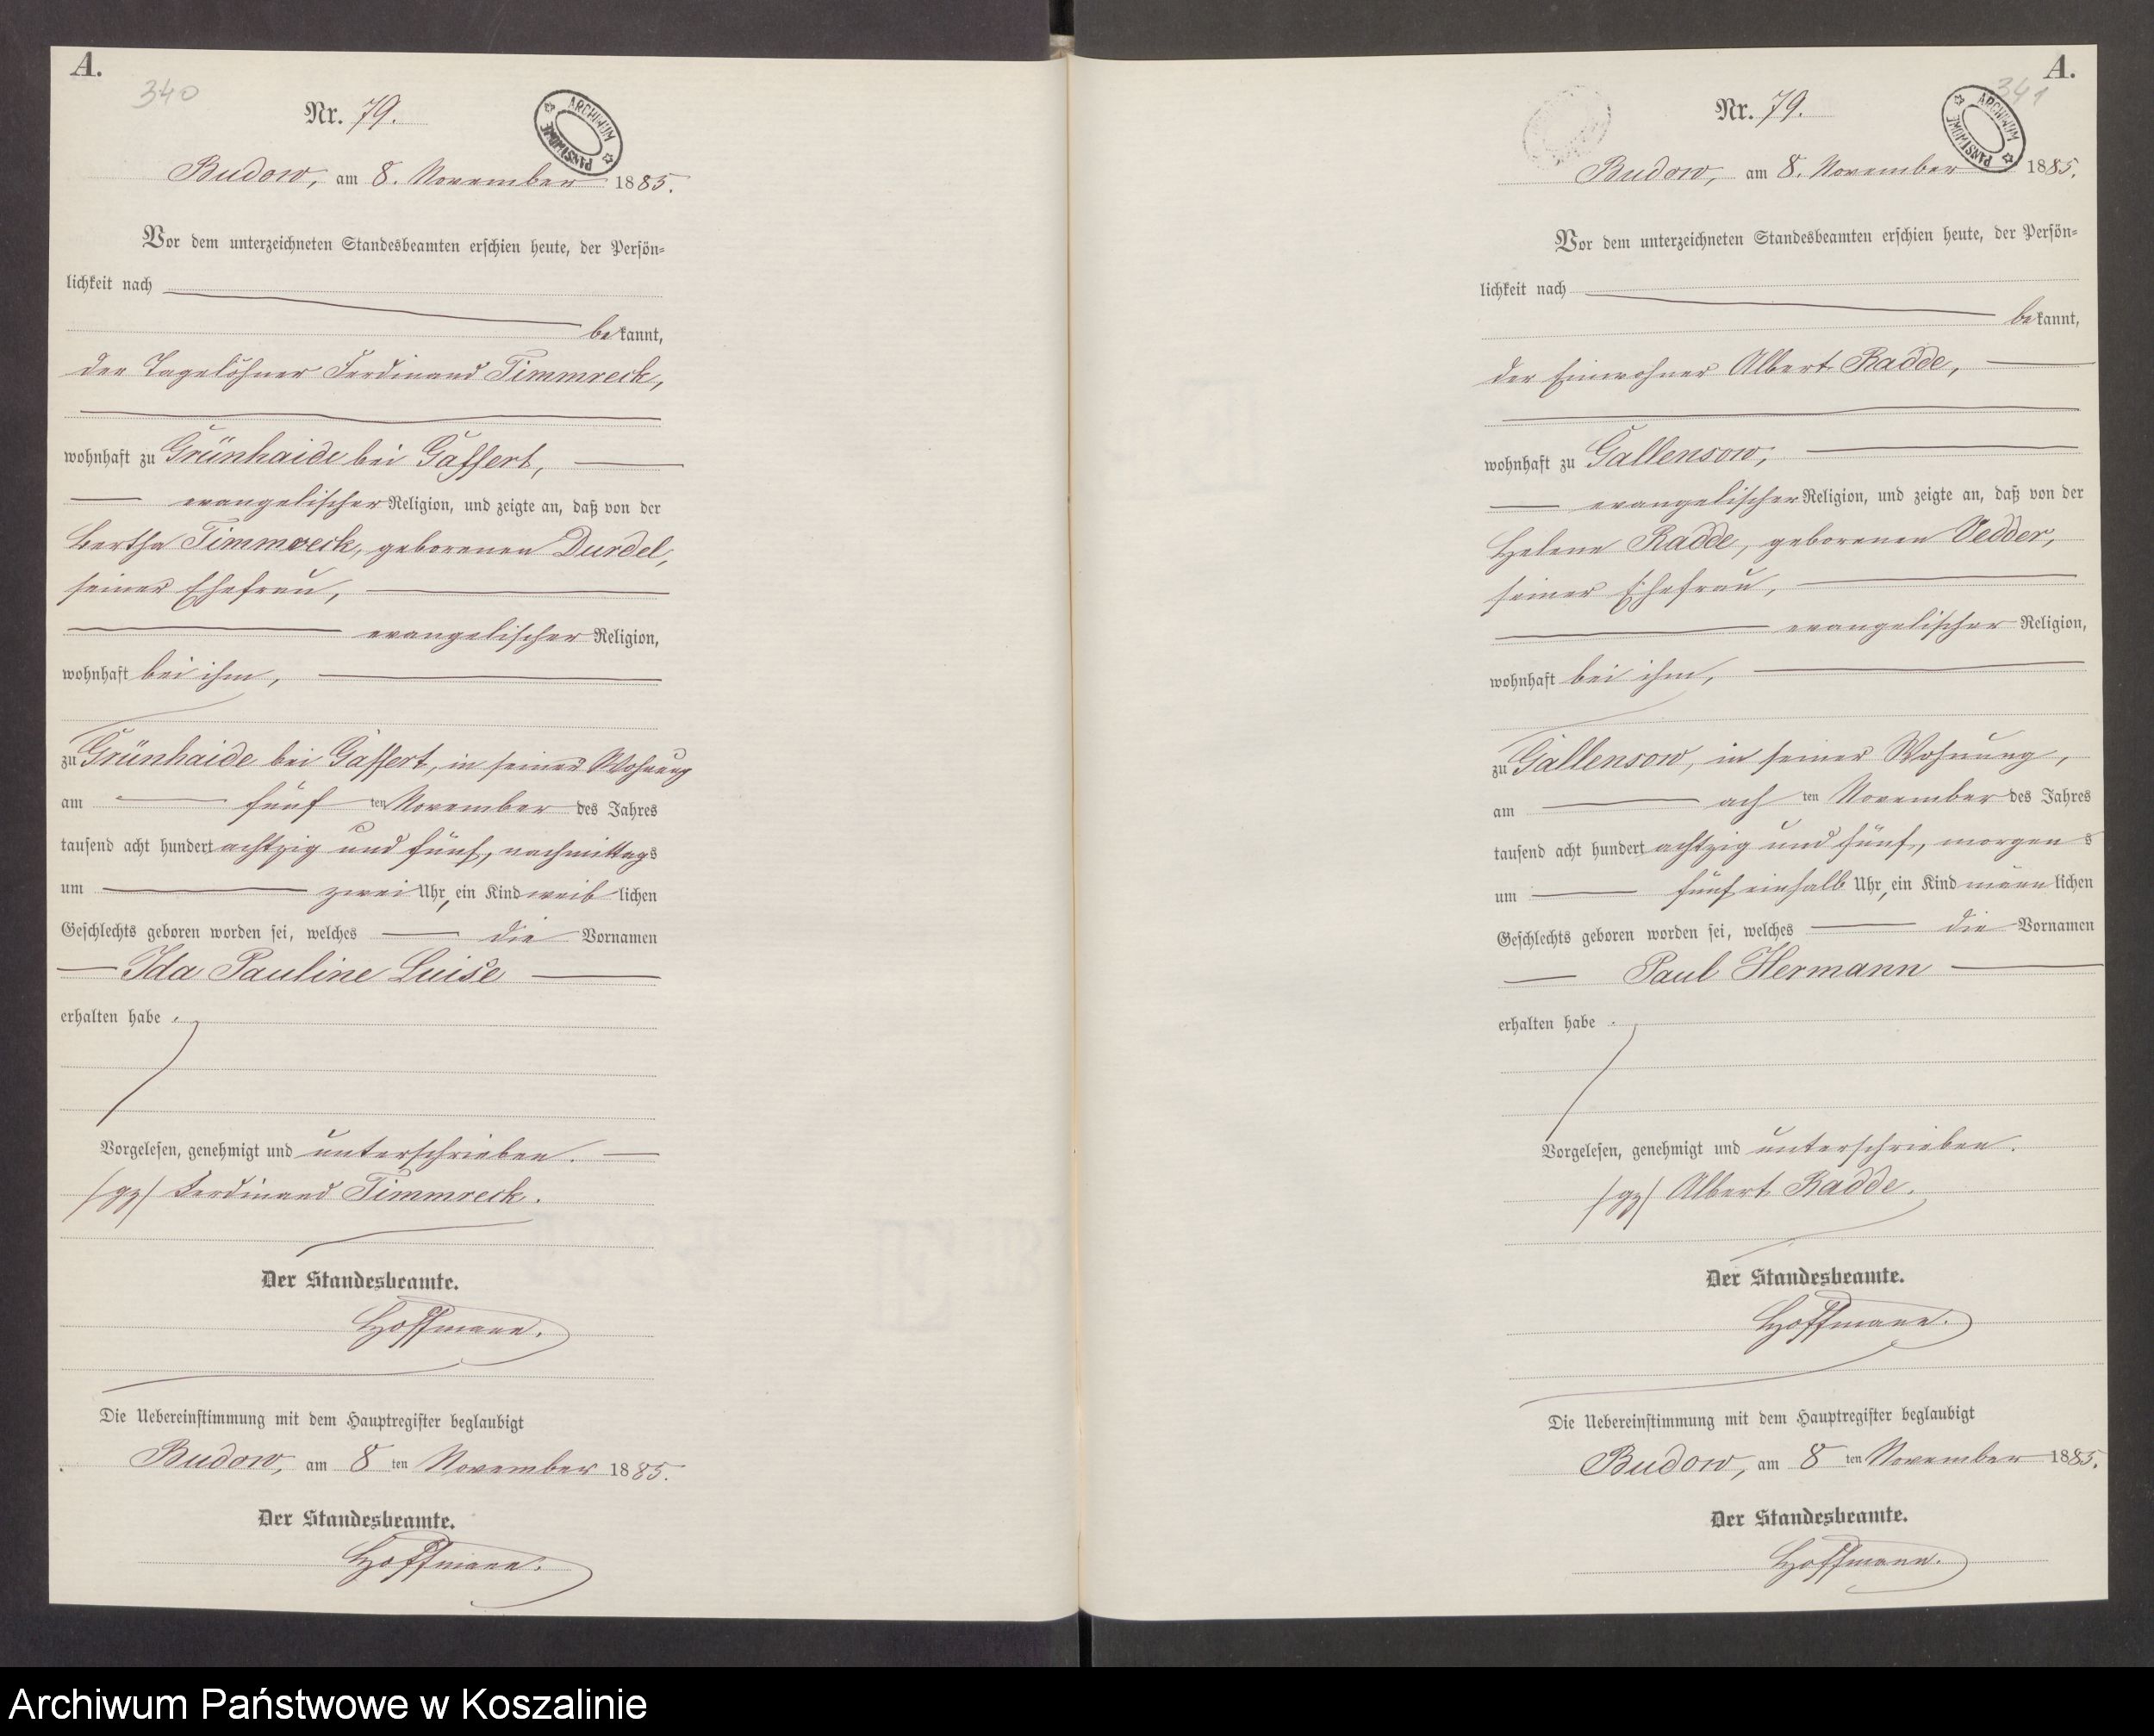 A.
340
Nr. 79.
ARCHIWUM PAŃSTWOWE
Budow, am 8. November 1885.
Vor dem unterzeichneten Standesbeamten erschien heute, der Persön=
lichkeit nach
bekannt,
der Tagelöhner Ferdinand Timmreck,
wohnhaft zu Grünhaide bei Gaffert,
evangelischer Religion, und zeigte an, daß von der
Bertha Timmreck, geborenen Durdel,
seiner Ehefrau,
evangelischer Religion,
wohnhaft bei ihm,
zu Grünhaide bei Gaffert, in seiner Wohnung
am fünf ten November des Jahres
tausend acht hundert achtzig und fünf, nachmittags
um zwei Uhr, ein Kind weiblichen
Geschlechts geboren worden sei, welches die Vornamen
Ida Pauline Luise
erhalten habe.
Vorgelesen, genehmigt und unterschrieben.
/gz/ Ferdinand Timmreck.
Der Standesbeamte.
Hoffmann.
Die Uebereinstimmung mit dem Hauptregister beglaubigt
Budow, am 8 ten November 1885.
Der Standesbeamte.
Hoffmann.
A.
341
Nr. 79.
ARCHIWUM PAŃSTWOWE
Budow, am 8. November 1885.
Vor dem unterzeichneten Standesbeamten erschien heute, der Persön=
lichkeit nach
bekannt,
der Einwohner Albert Radde,
wohnhaft zu Gallensow,
evangelischer Religion, und zeigte an, daß von der
Helene Radde, geborenen Vedder,
seiner Ehefrau,
evangelischer Religion,
wohnhaft bei ihm,
zu Gallensow, in seiner Wohnung,
am ach ten November des Jahres
tausend acht hundert achtzig und fünf, morgens
um fünf einhalb Uhr, ein Kind männlichen
Geschlechts geboren worden sei, welches die Vornamen
Paul Hermann
erhalten habe.
Vorgelesen, genehmigt und unterschrieben.
/gz/ Albert Radde.
Der Standesbeamte.
Hoffmann.
Die Uebereinstimmung mit dem Hauptregister beglaubigt
Budow, am 8 ten November 1885.
Der Standesbeamte.
Hoffmann.
Archiwum Państwowe w Koszalinie